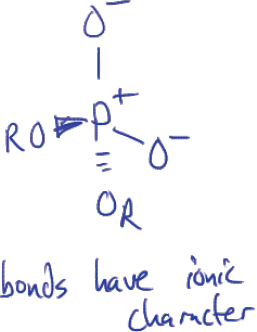 O⁻
RO P⁺
O⁻
OR
bonds have ionic
character